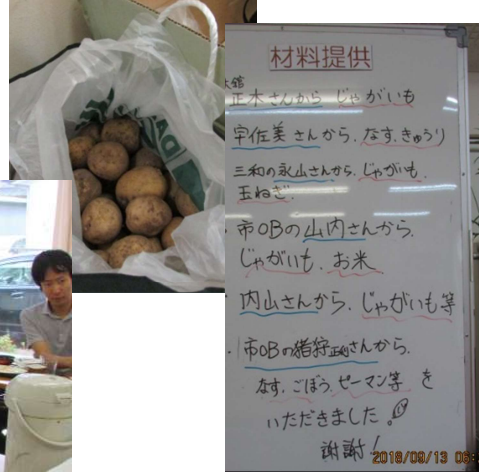 材料提供
正木さんから じゃがいも
宇佐美さんから、なす、きゅうり
三和の永山さんから、じゃがいも、
玉ねぎ、
・市OBの山内さんから、
じゃがいも、お米
内山さんから、じゃがいも等
・市OBの猪狩さんから、
なす、ごぼう、ピーマン等を
いただきました。
謝謝!